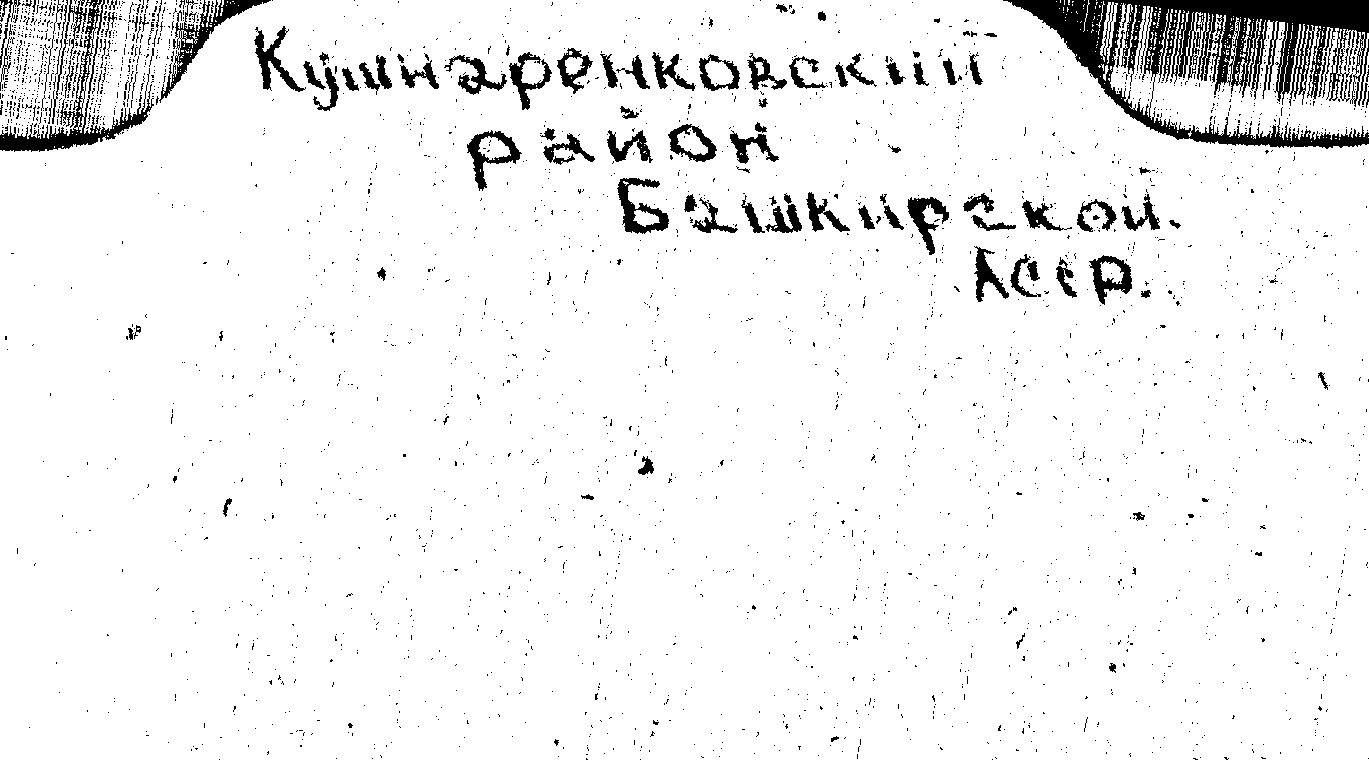 Кушнаренковский
район
Башкирской.
АССР.